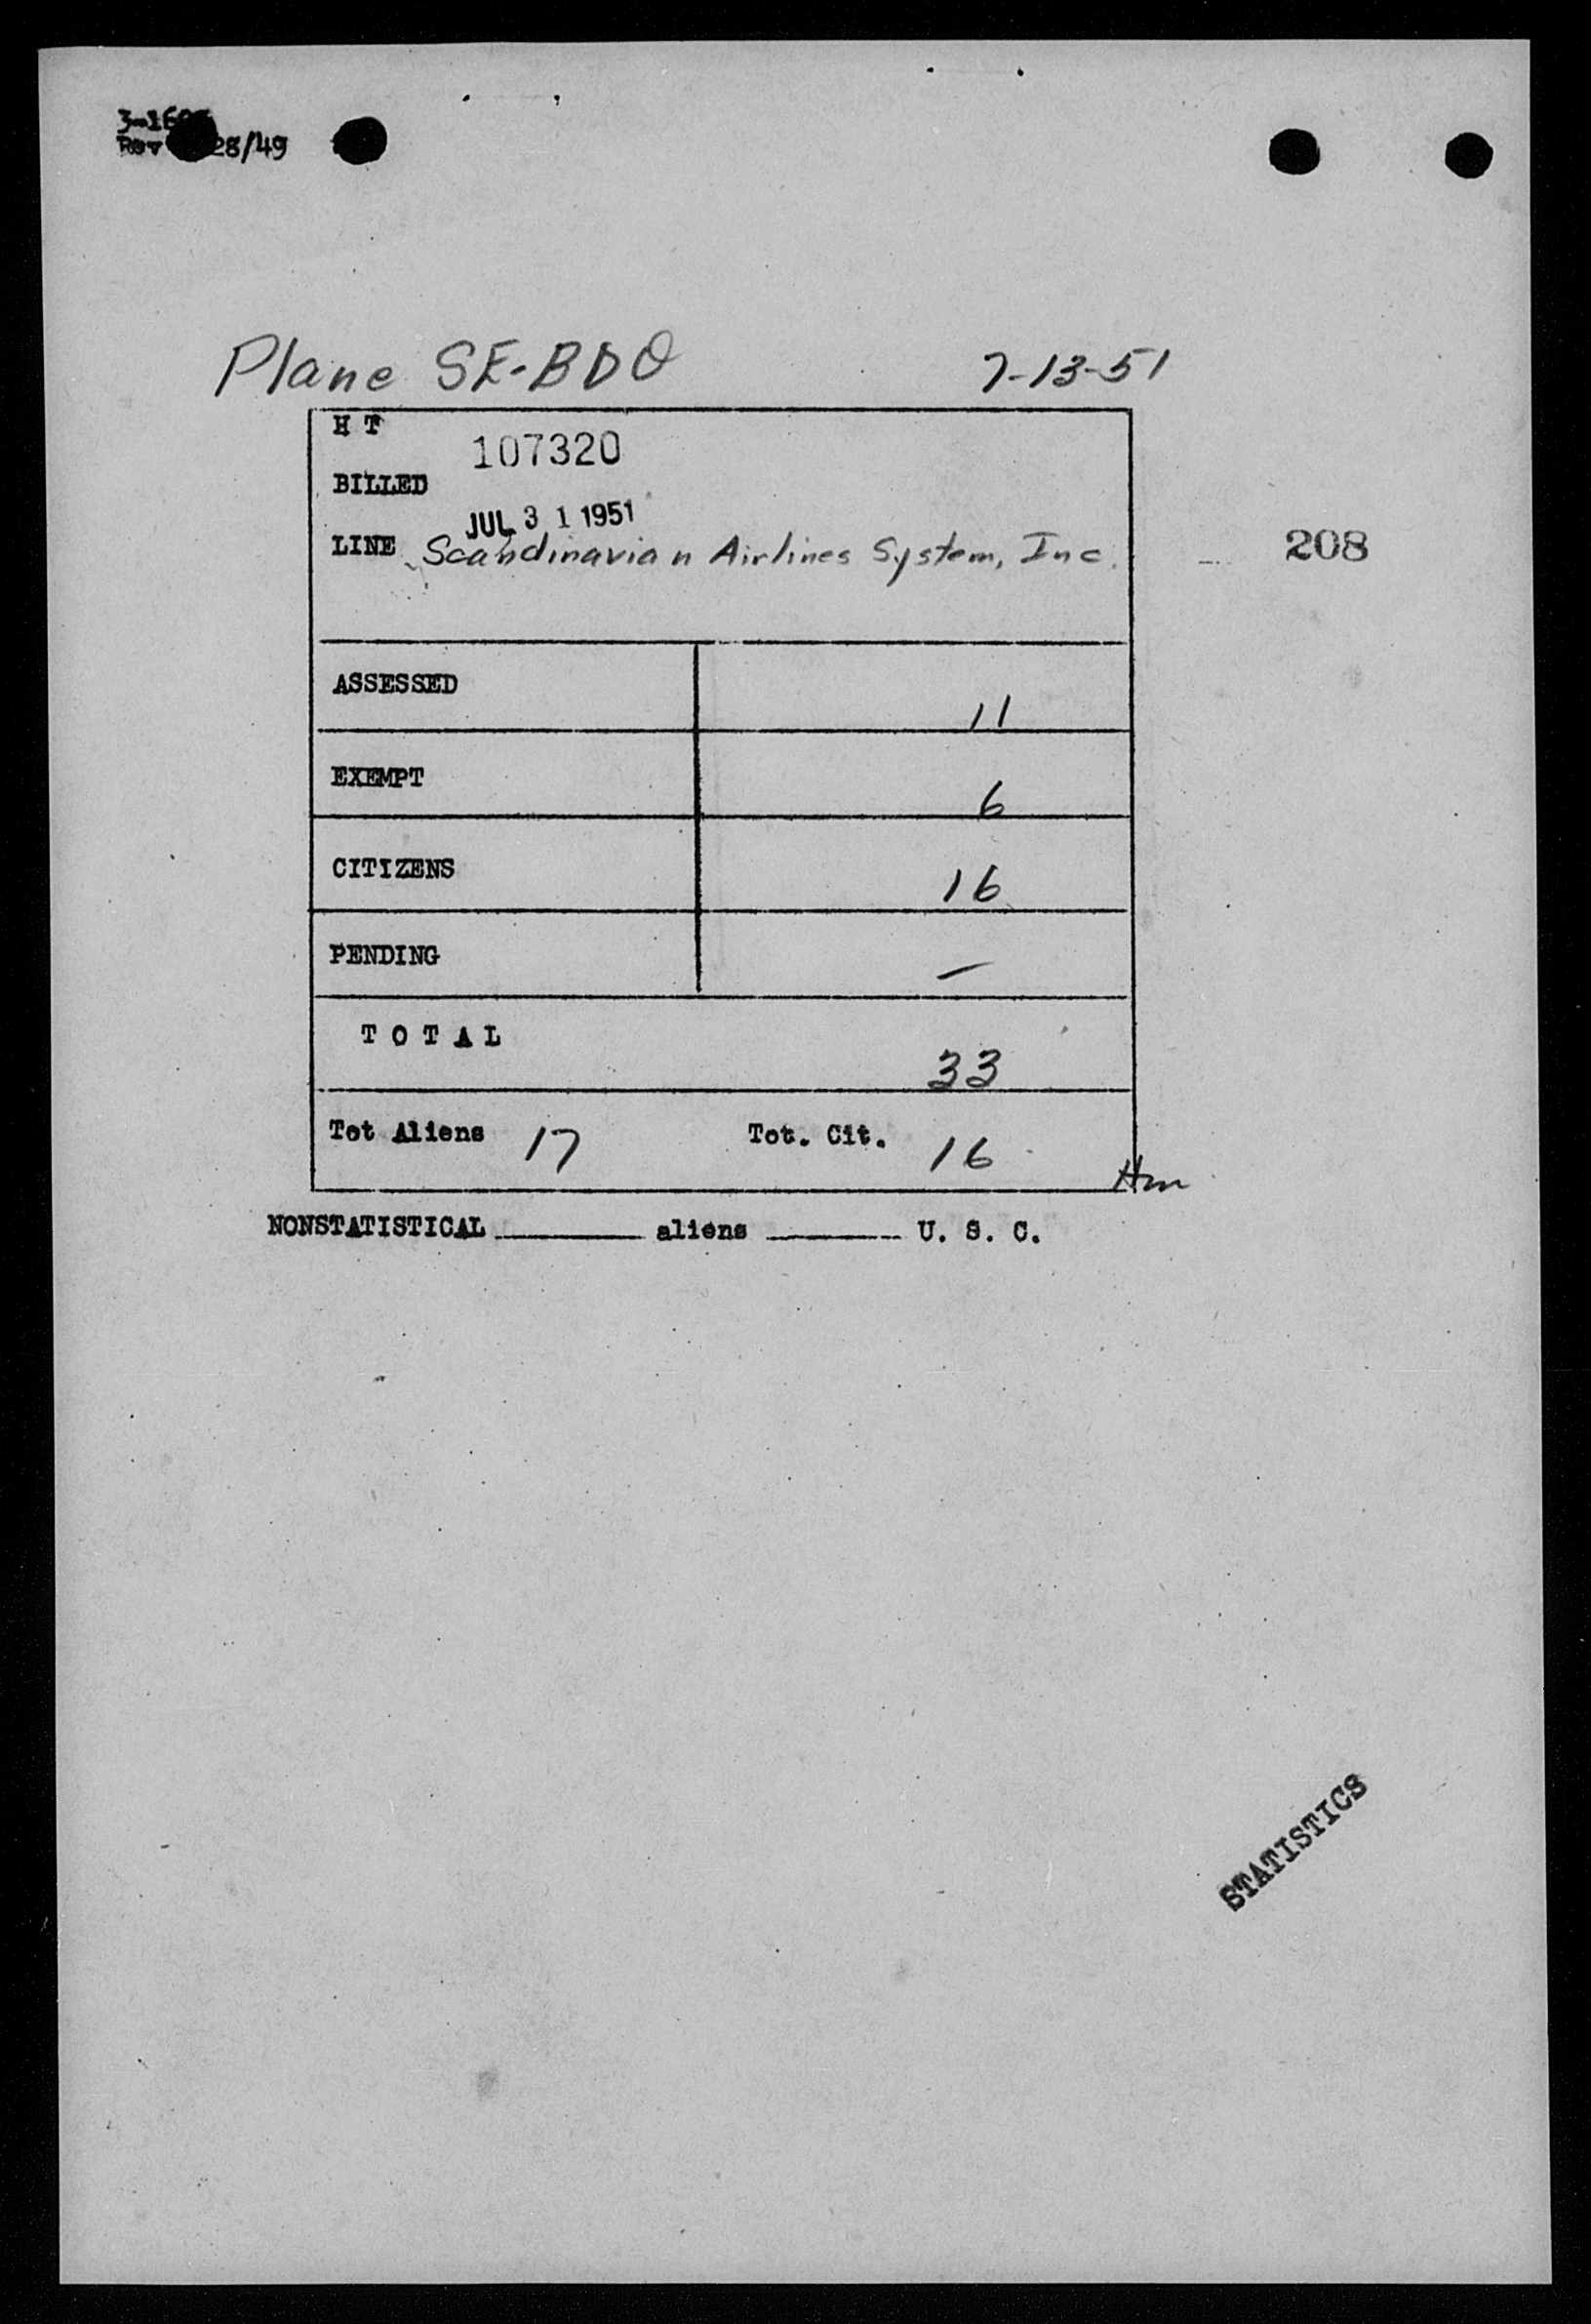 Rev 28/49
Plane SE-BDO 7-13-51
H T
107320
BILLED
JUL 31 1951
LINE Scandinavian Airlines System, Inc.
208
ASSESSED 11
EXEMPT 6
CITIZENS 16
PENDING —
TOTAL 33
Tot Aliens 17 Tot. Cit. 16
Hm
NONSTATISTICAL ______ aliens ______ U. S. C.
STATISTICS